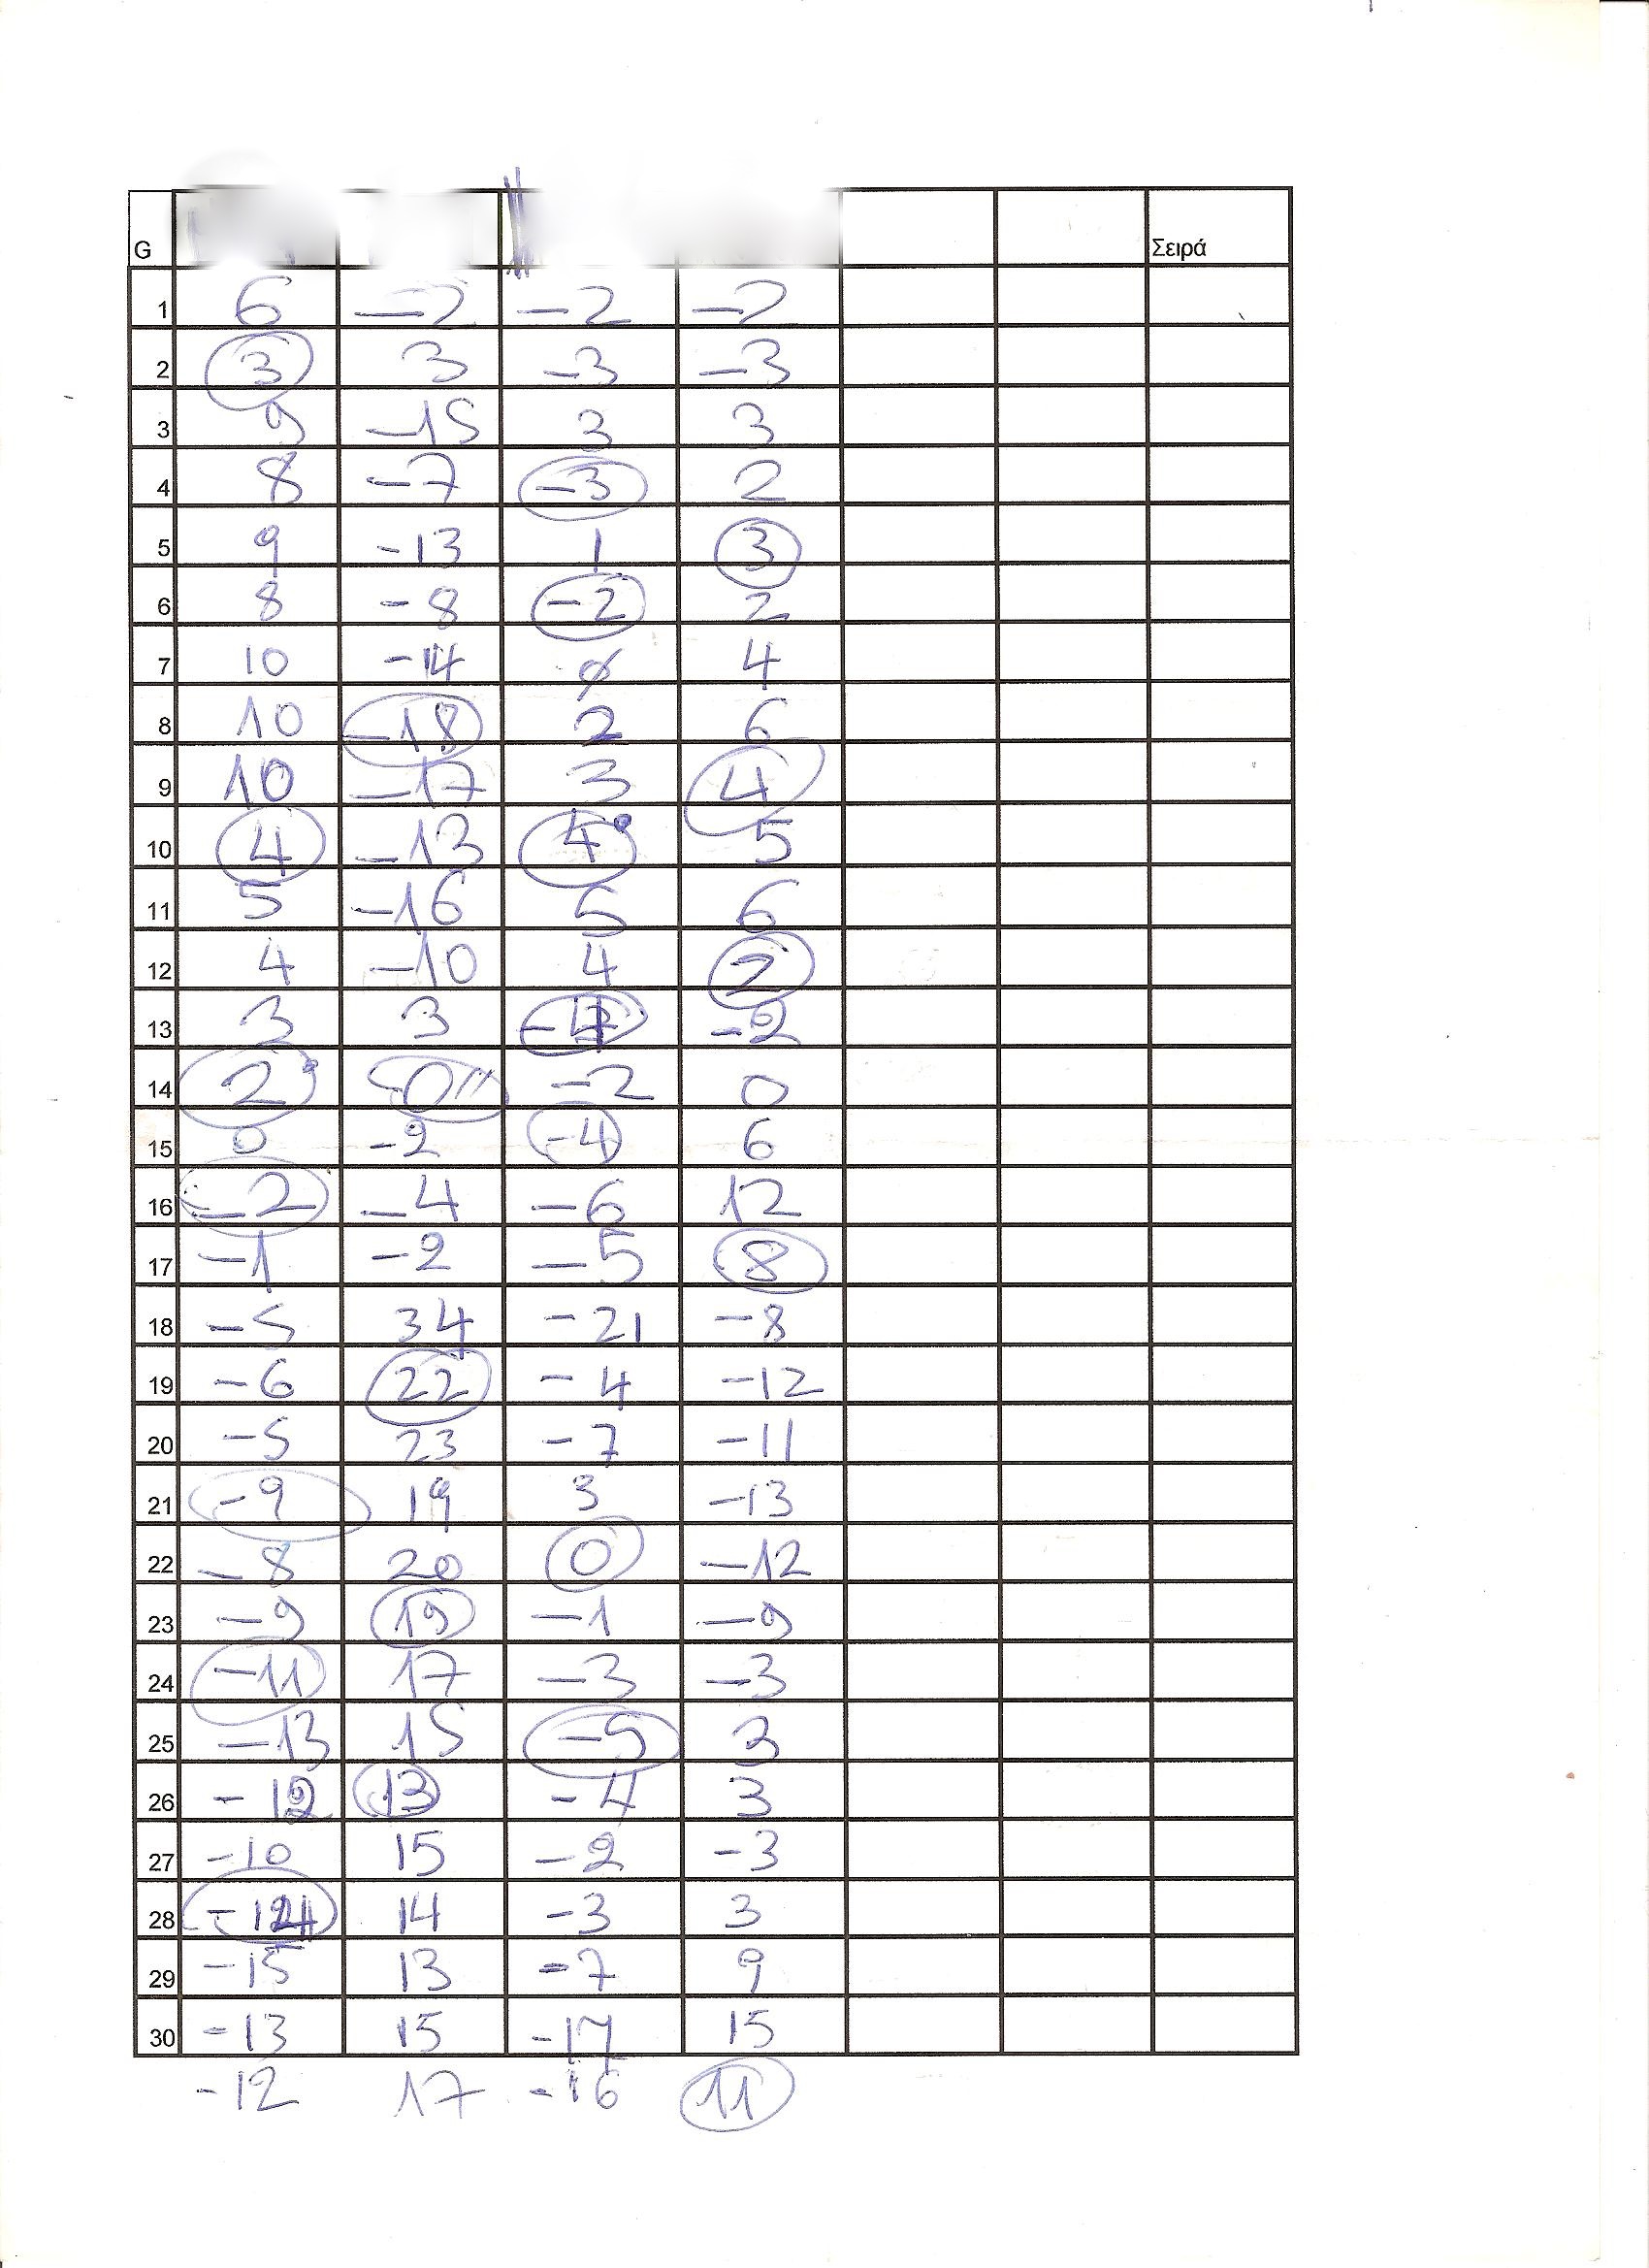 G Σειρά
1 6 -2 -2 -2
2 3 3 -3 -3
3 9 -15 3 3
4 8 -7 -3 2
5 9 -13 1 3
6 8 -8 -2 2
7 10 -14 0 4
8 10 -18 2 6
9 10 -17 3 4
10 4 -13 4 5
11 5 -16 5 6
12 4 -10 4 2
13 3 3 -2
14 2 0 -2 0
15 0 -2 -4 6
16 -2 -4 -6 12
17 -1 -2 -5 8
18 -5 34 -21 -8
19 -6 22 -4 -12
20 -5 23 -7 -11
21 -9 19 3 -13
22 -8 20 0 -12
23 -9 19 -1 -9
24 -11 17 -3 -3
25 -13 15 -5 3
26 -12 13 -4 3
27 -10 15 -2 -3
28 14 -3 3
29 -15 13 -7 9
30 -13 15 -17 15
-12 17 -16 11